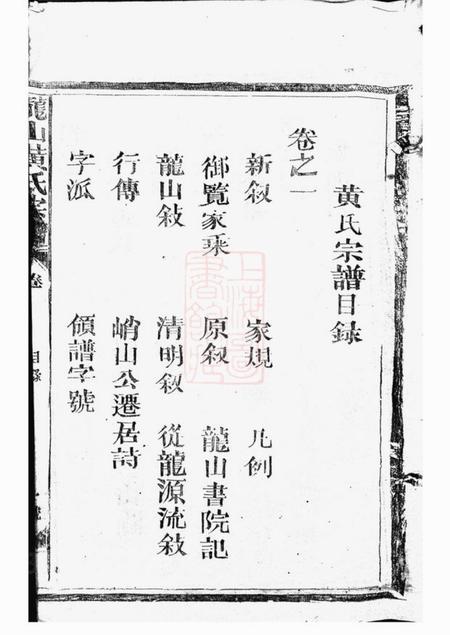 黃氏宗譜目錄
卷之一
新敘 家規 凡例
御覽家乘 原敘 龍山書院記
龍山敍 清明敘 從龍源流敍
行傳 峭山公遷居詩
字派 領譜字號
龍山黃氏宗
卷
目錄
上海圖書館藏